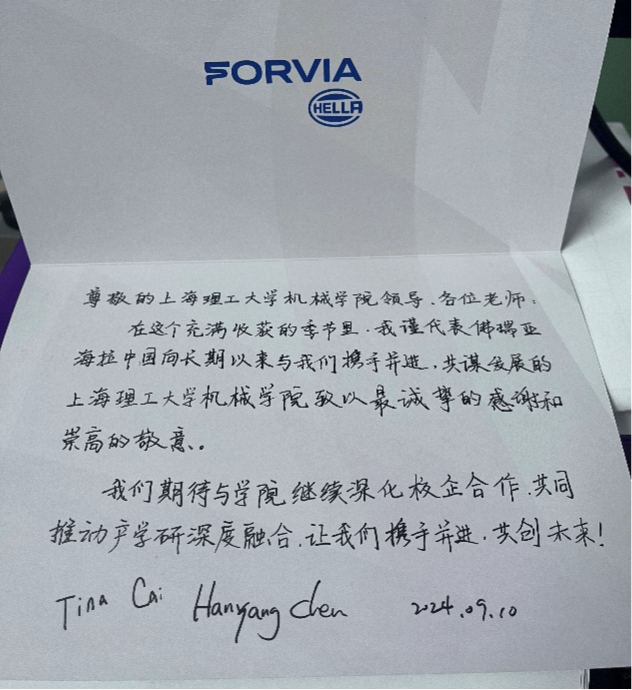 FORVIA
HELLA
尊敬的上海理工大学机械学院领导、各位老师：
在这个充满收获的季节里，我谨代表佛瑞亚
海拉中国向长期以来与我们携手并进、共谋发展的
上海理工大学机械学院致以最诚挚的感谢和
崇高的敬意。
我们期待与学院继续深化校企合作，共同
推动产学研深度融合，让我们携手并进，共创未来！
Tina Cai Hanyang Chen 2024.09.10